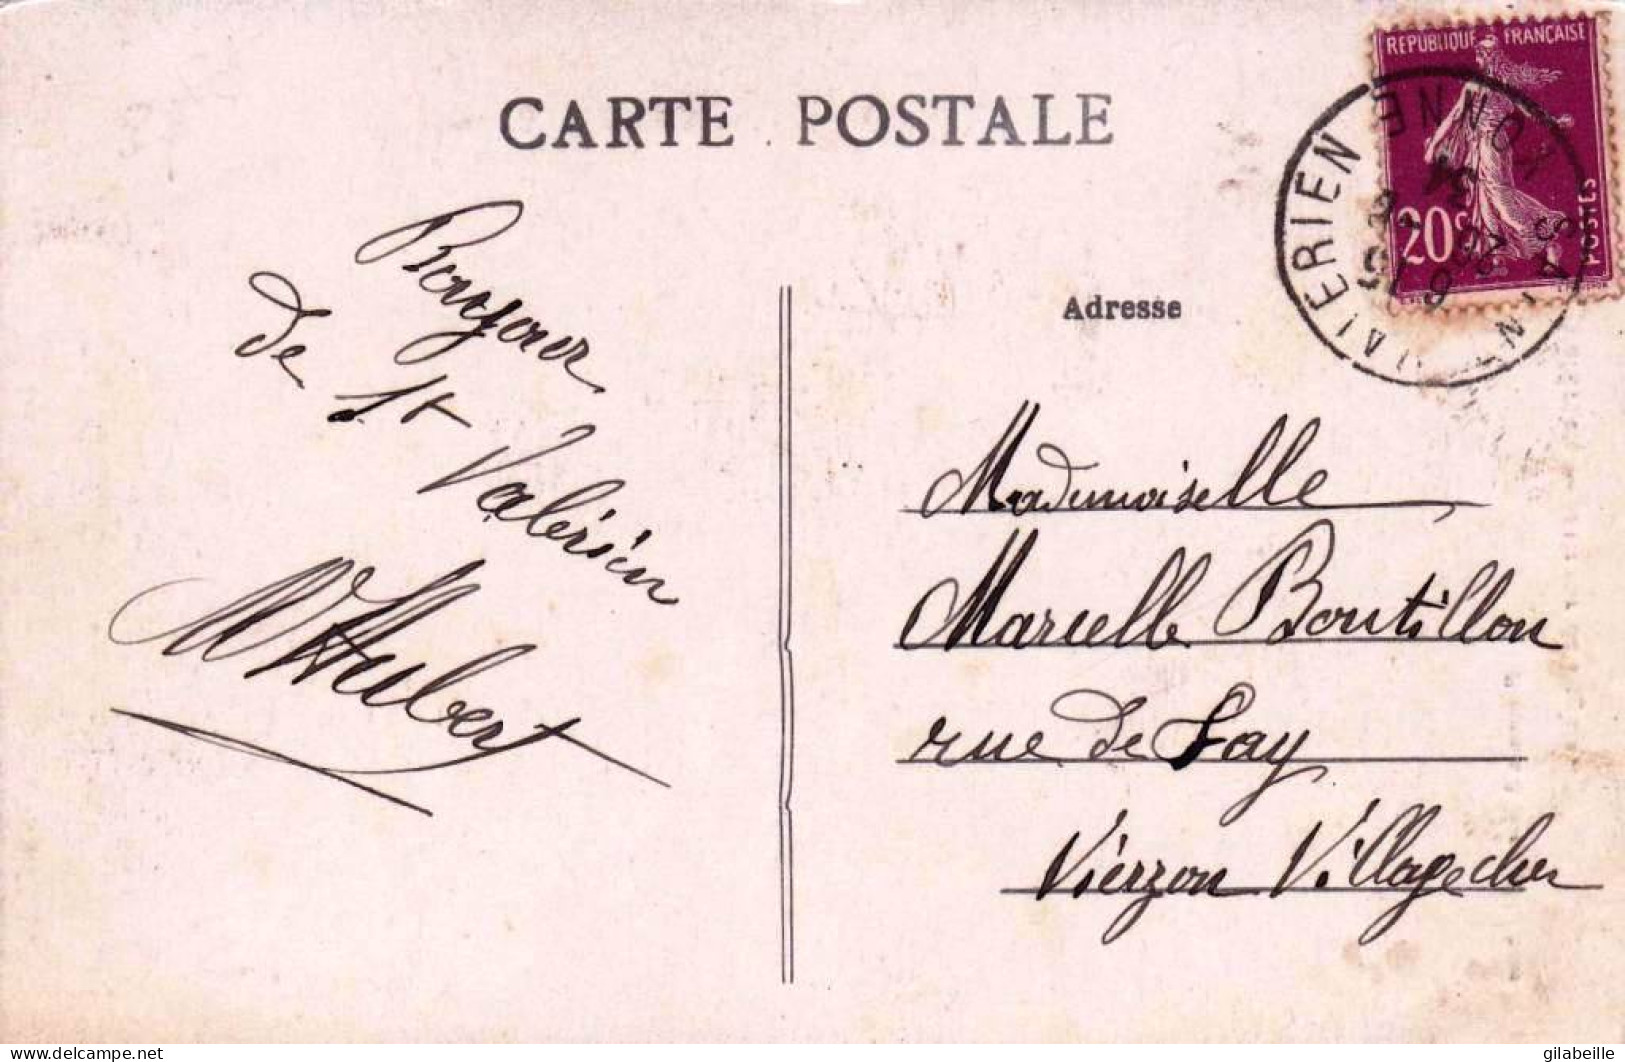 CARTE POSTALE
REPUBLIQUE FRANÇAISE
20c
POSTES
SAINT VALERIEN
YONNE
Bonjour
de St Valérien
Hubert
Adresse
Mademoiselle
Marcelle Boutillon
rue de Fay
Vierzon Village cher
delcampe.net
gilabeille